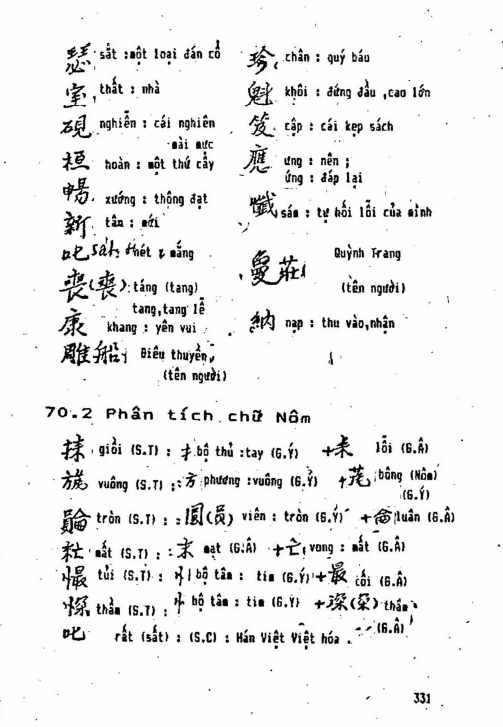 瑟 sắt :một loại đấn cổ
室, thất : nhà
硯 nghiễn : cái nghiên
mài mực
桓 hoàn : một thứ cây
暢 xướng : thộng đạt
新 tân : mới
叱 sất: thét & mắng
喪(喪): táng (tang)
tang,tang lễ
康 khang : yên vui
雕船 Điêu thuyền,
(tên người)
珍, chân : quý báu
魁 khôi : đứng đầu ,cao lớn
笈 cập : cái kẹp sách
應 ưng : nên ;
ứng : đáp lại
懺 sám : tự hối lỗi của mình
Quỳnh Trang
莊
(tên người)
納 nạp : thu vào,nhận
70.2 Phân tích chữ Nôm
giồi (S.T) : 扌bộ thủ :tay (G.Ý) +耒 lỗi (G.Â)
vuông (S.T) : 方 phương :vuông (G.Ý) + bông (Nôm)
(G.Ý)
tròn (S.T) : 圓(员) viên : tròn (G.Ý) +侖 luân (G.Â)
mất (S.T) : 末 mạt (G.Â) +亡, vong : mất (G.Â)
tủi (S.T) : 忄 bộ tâm : tim (G.Ý) +最 tối (G.Â)
thầm (S.T) : 忄 bộ tâm : tim (G.Ý) +深(罙) thâm
(G.Â)
叱 rất (sất) : (S.C) : Hán Việt Việt hóa .
331